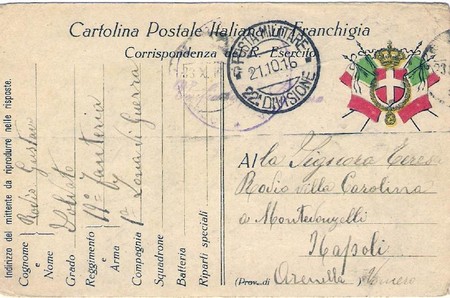 Cartolina Postale Italiana in Franchigia
Corrispondenza del R. Esercito
POSTA MILITARE
21.10.16
22ª DIVISIONE
Al la Signora Teresa
Rodio villa Carolina
a Montedonzelli
Napoli
(Prov. di) Arenella Vomero
Indirizzo del mittente da riprodurre nelle risposte.
Cognome e Rodio Gustavo
Nome
Grado Soldato
Reggimento e 11º Fanteria
Arma
Compagnia 1ª Zona di guerra
Squadrone
Batteria
Riparti speciali